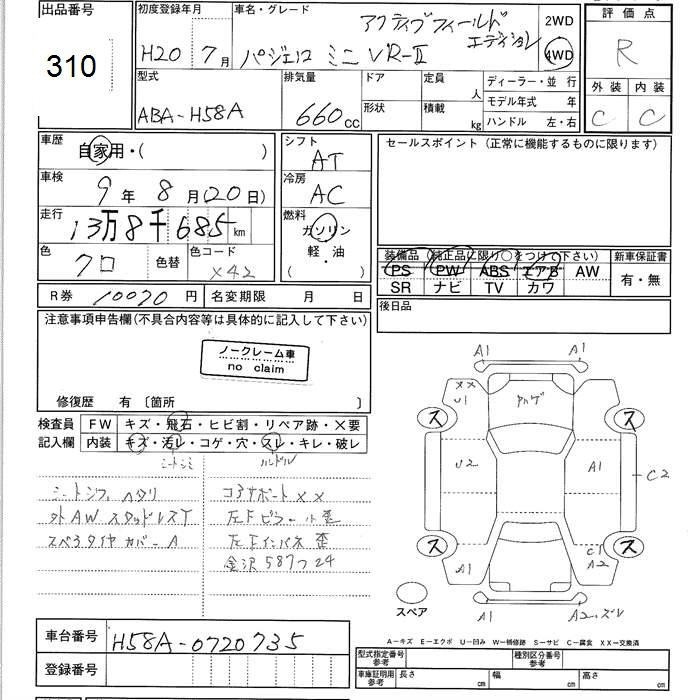 出品番号
310
初度登録年月
H20 7月
車名・グレード
パジェロ ミニ VR-II
アクティブフィールド
エディション
2WD
4WD
評価点
R
外装 内装
C C
型式
ABA-H58A
排気量
660 cc
ドア
形状
定員
人
積載
kg
ディーラー・並行
モデル年式 年
ハンドル 左・右
車歴
自家用・( )
シフト
AT
セールスポイント (正常に機能するものに限ります)
車検
9年 8月(20日)
冷房
AC
走行
13万8千685km
燃料
ガソリン
軽・油
( )
色
クロ
色替
色コード
X42
装備品 (純正品に限り○をつけて下さい)
PS PW ABS エアB AW
SR ナビ TV カワ
新車保証書
有・無
R券 10070円
名変期限 月 日
後日品
注意事項申告欄(不具合内容等は具体的に記入して下さい)
ノークレーム車
no claim
修復歴 有 〔箇所 〕
検査員
記入欄
FW キズ・飛石・ヒビ割・リペア跡・X要
内装 キズ・汚レ・コゲ・穴・スレ・キレ・破レ
シートシミ
ハンドル
シートンフ ヘタリ
外AWスタッドレスT
スペアタイヤカバーA
コアサポートXX
左Fピラー小歪
左Fインパネ歪
金沢587つ24
A1 A1
XX
U1
ス
ス
U2
A1
C2
ス
ス
A1
C1
A2
スペア
A1
A2・ズレ
A－キズ E－エクボ U－凹み W－補修跡 S－サビ C－腐食 XX－交換済
車台番号
H58A-0720735
登録番号
型式指定番号
参考
種別区分番号
参考
車庫証明用
参考
長さ cm
幅 cm
高さ cm